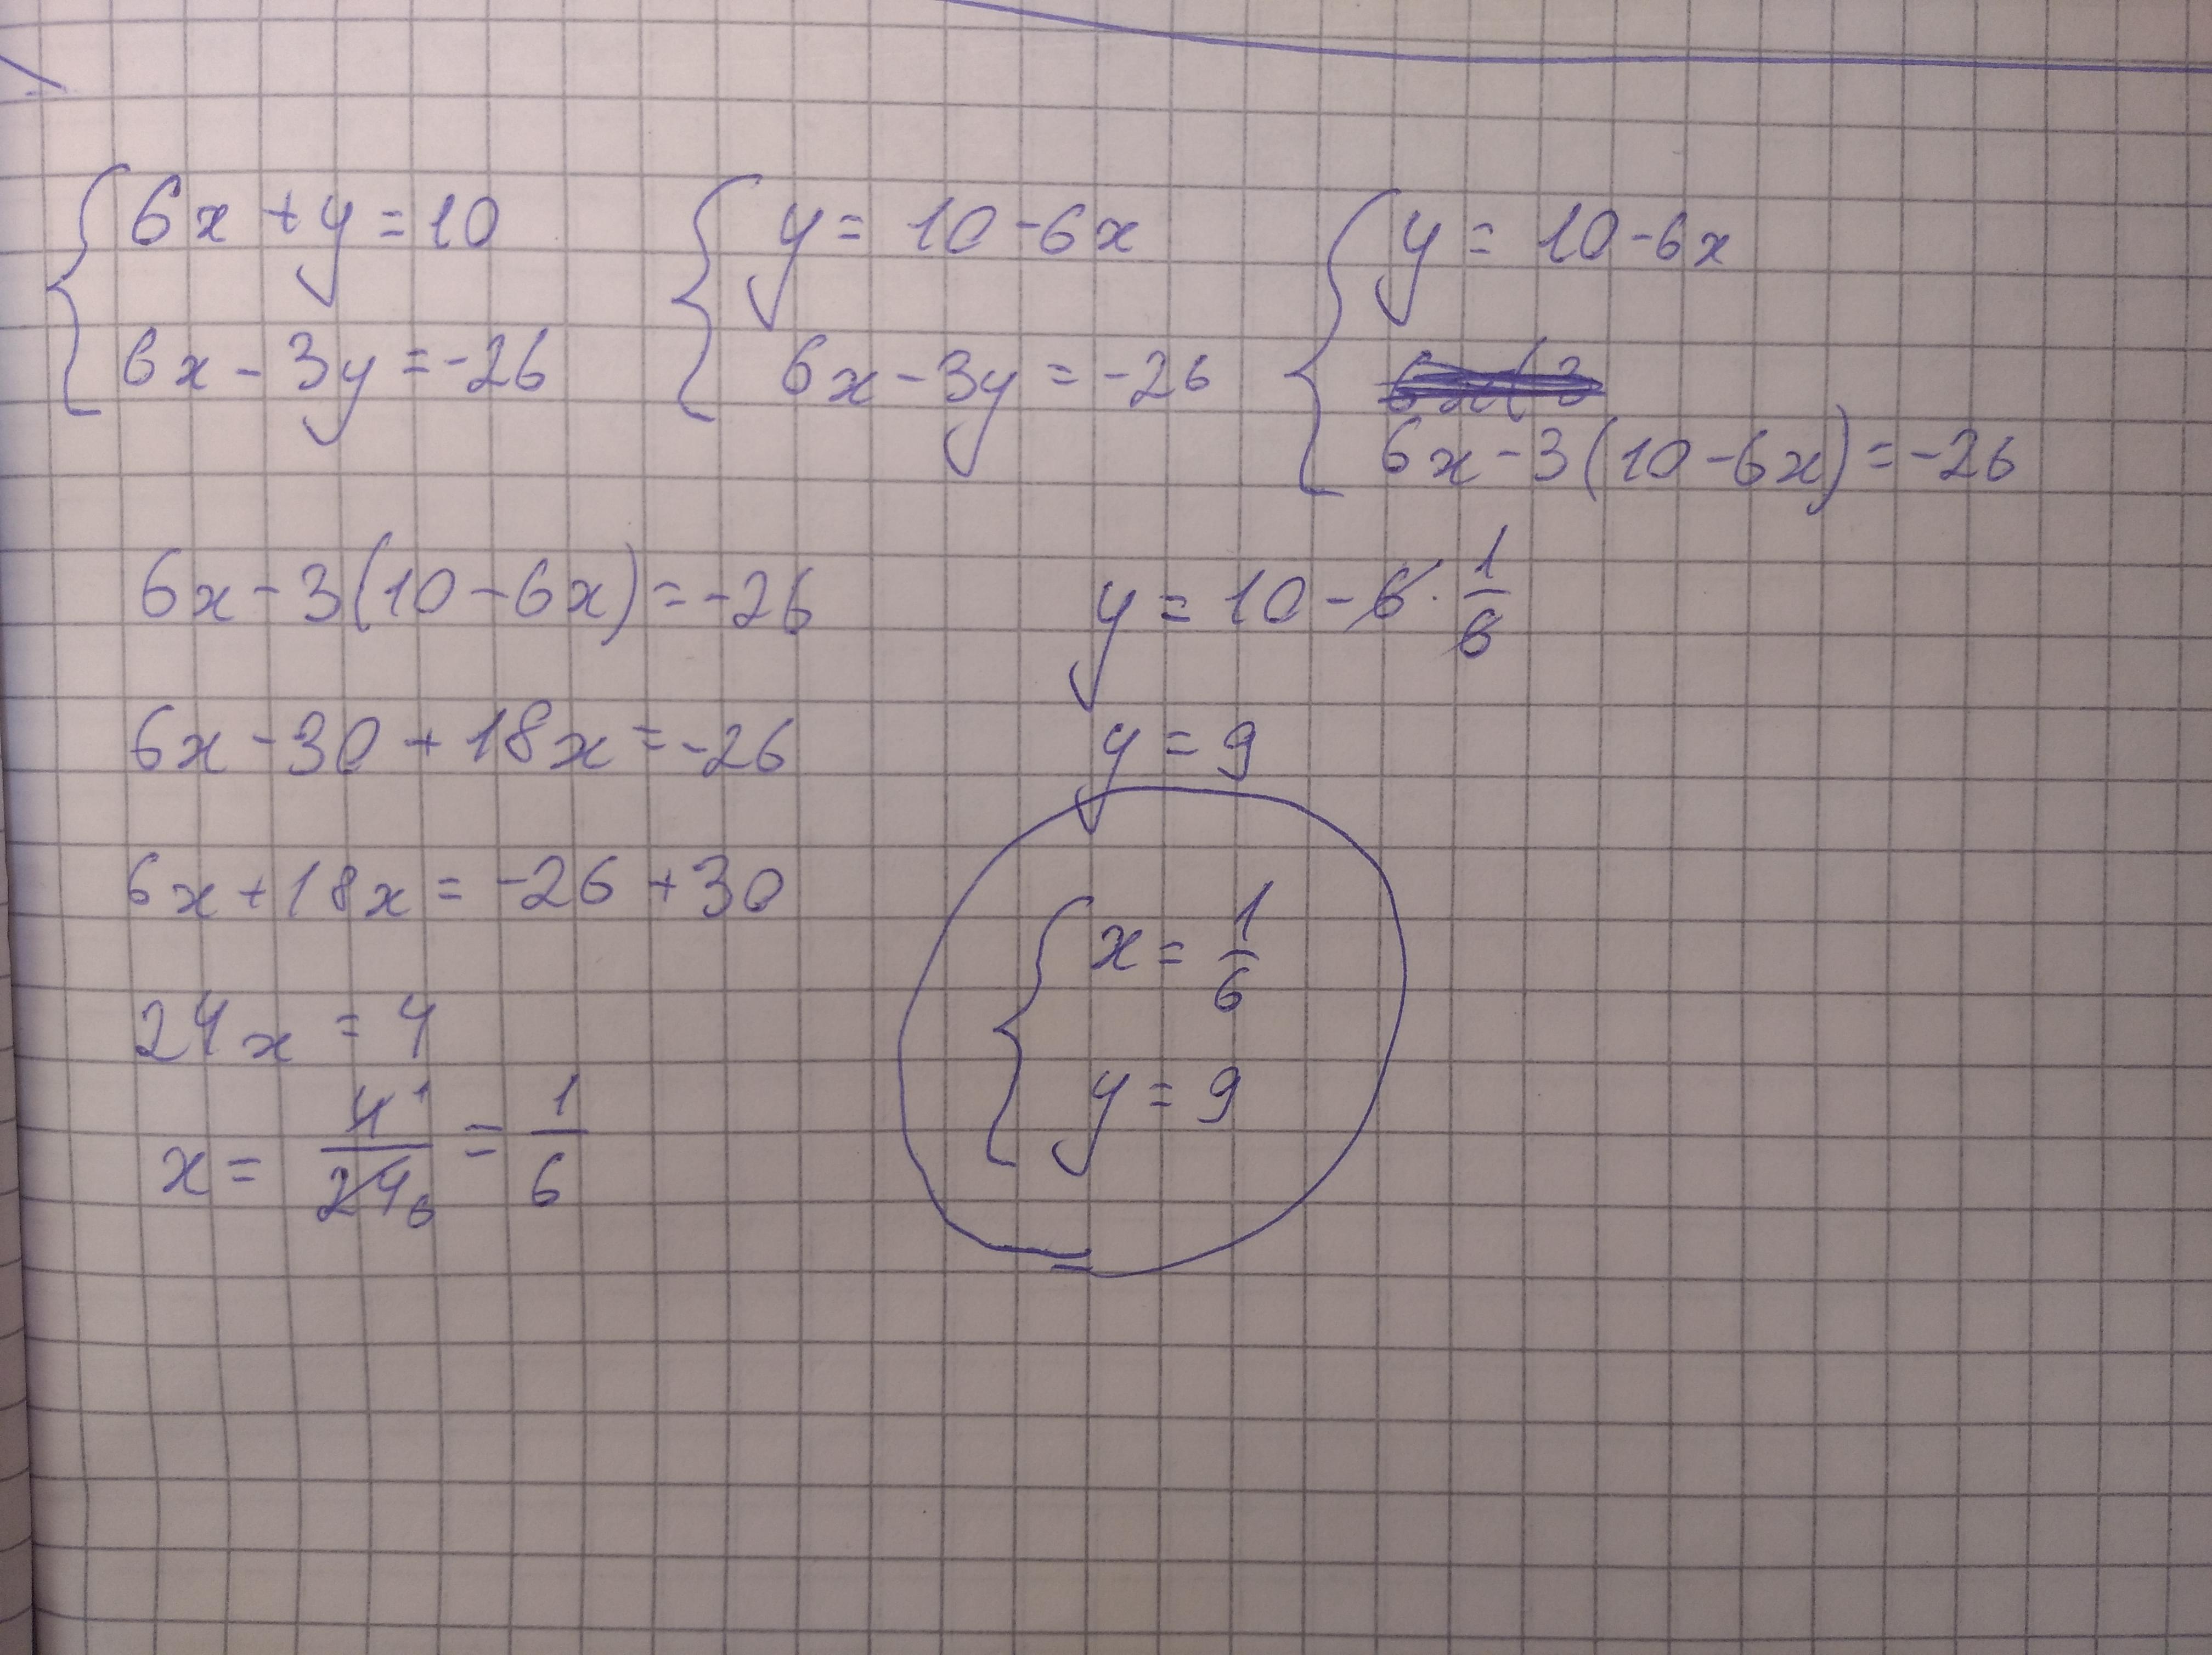 6x + y = 10
6x - 3y = -26
y = 10 - 6x
6x - 3y = -26
y = 10 - 6x
6x - 3(10 - 6x) = -26
6x - 3(10 - 6x) = -26
6x - 30 + 18x = -26
6x + 18x = -26 + 30
24x = 4
x = 4/24 = 1/6
y = 10 - 6 · 1/6
y = 9
x = 1/6
y = 9